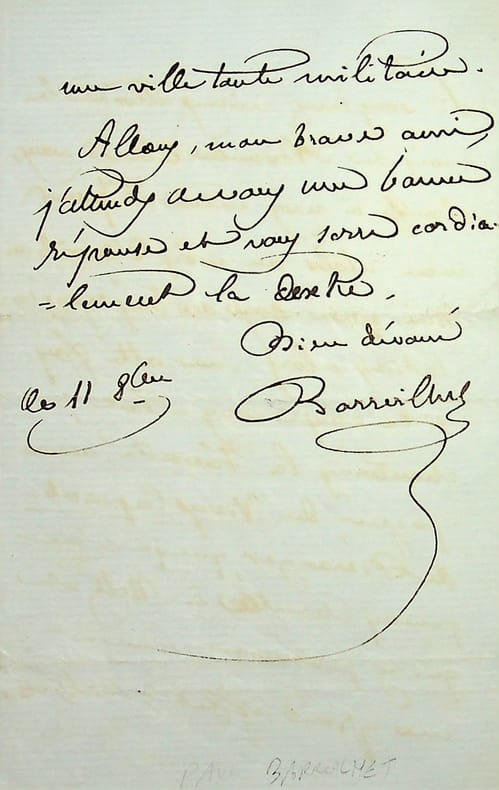 une ville toute militaire.
Allons, mon brave ami,
j'attends de vous une bonne
réponse et vous serre cordia-
=lement la dextre.
Bien dévoué
ce 11 8bre
Barroilhet
BARROILHET